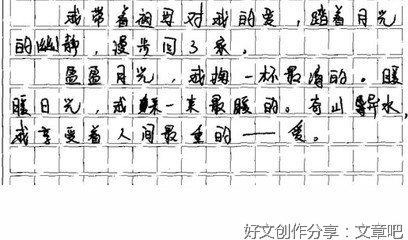 我带着祖母对我的爱，踏着月光
的幽静，漫步回了家。
盈盈月光，我掬一杯最清的。暖
暖日光，我躲一束最暖的。青山绿水，
我享受着人间最重的——爱。
好文创作分享：文章吧